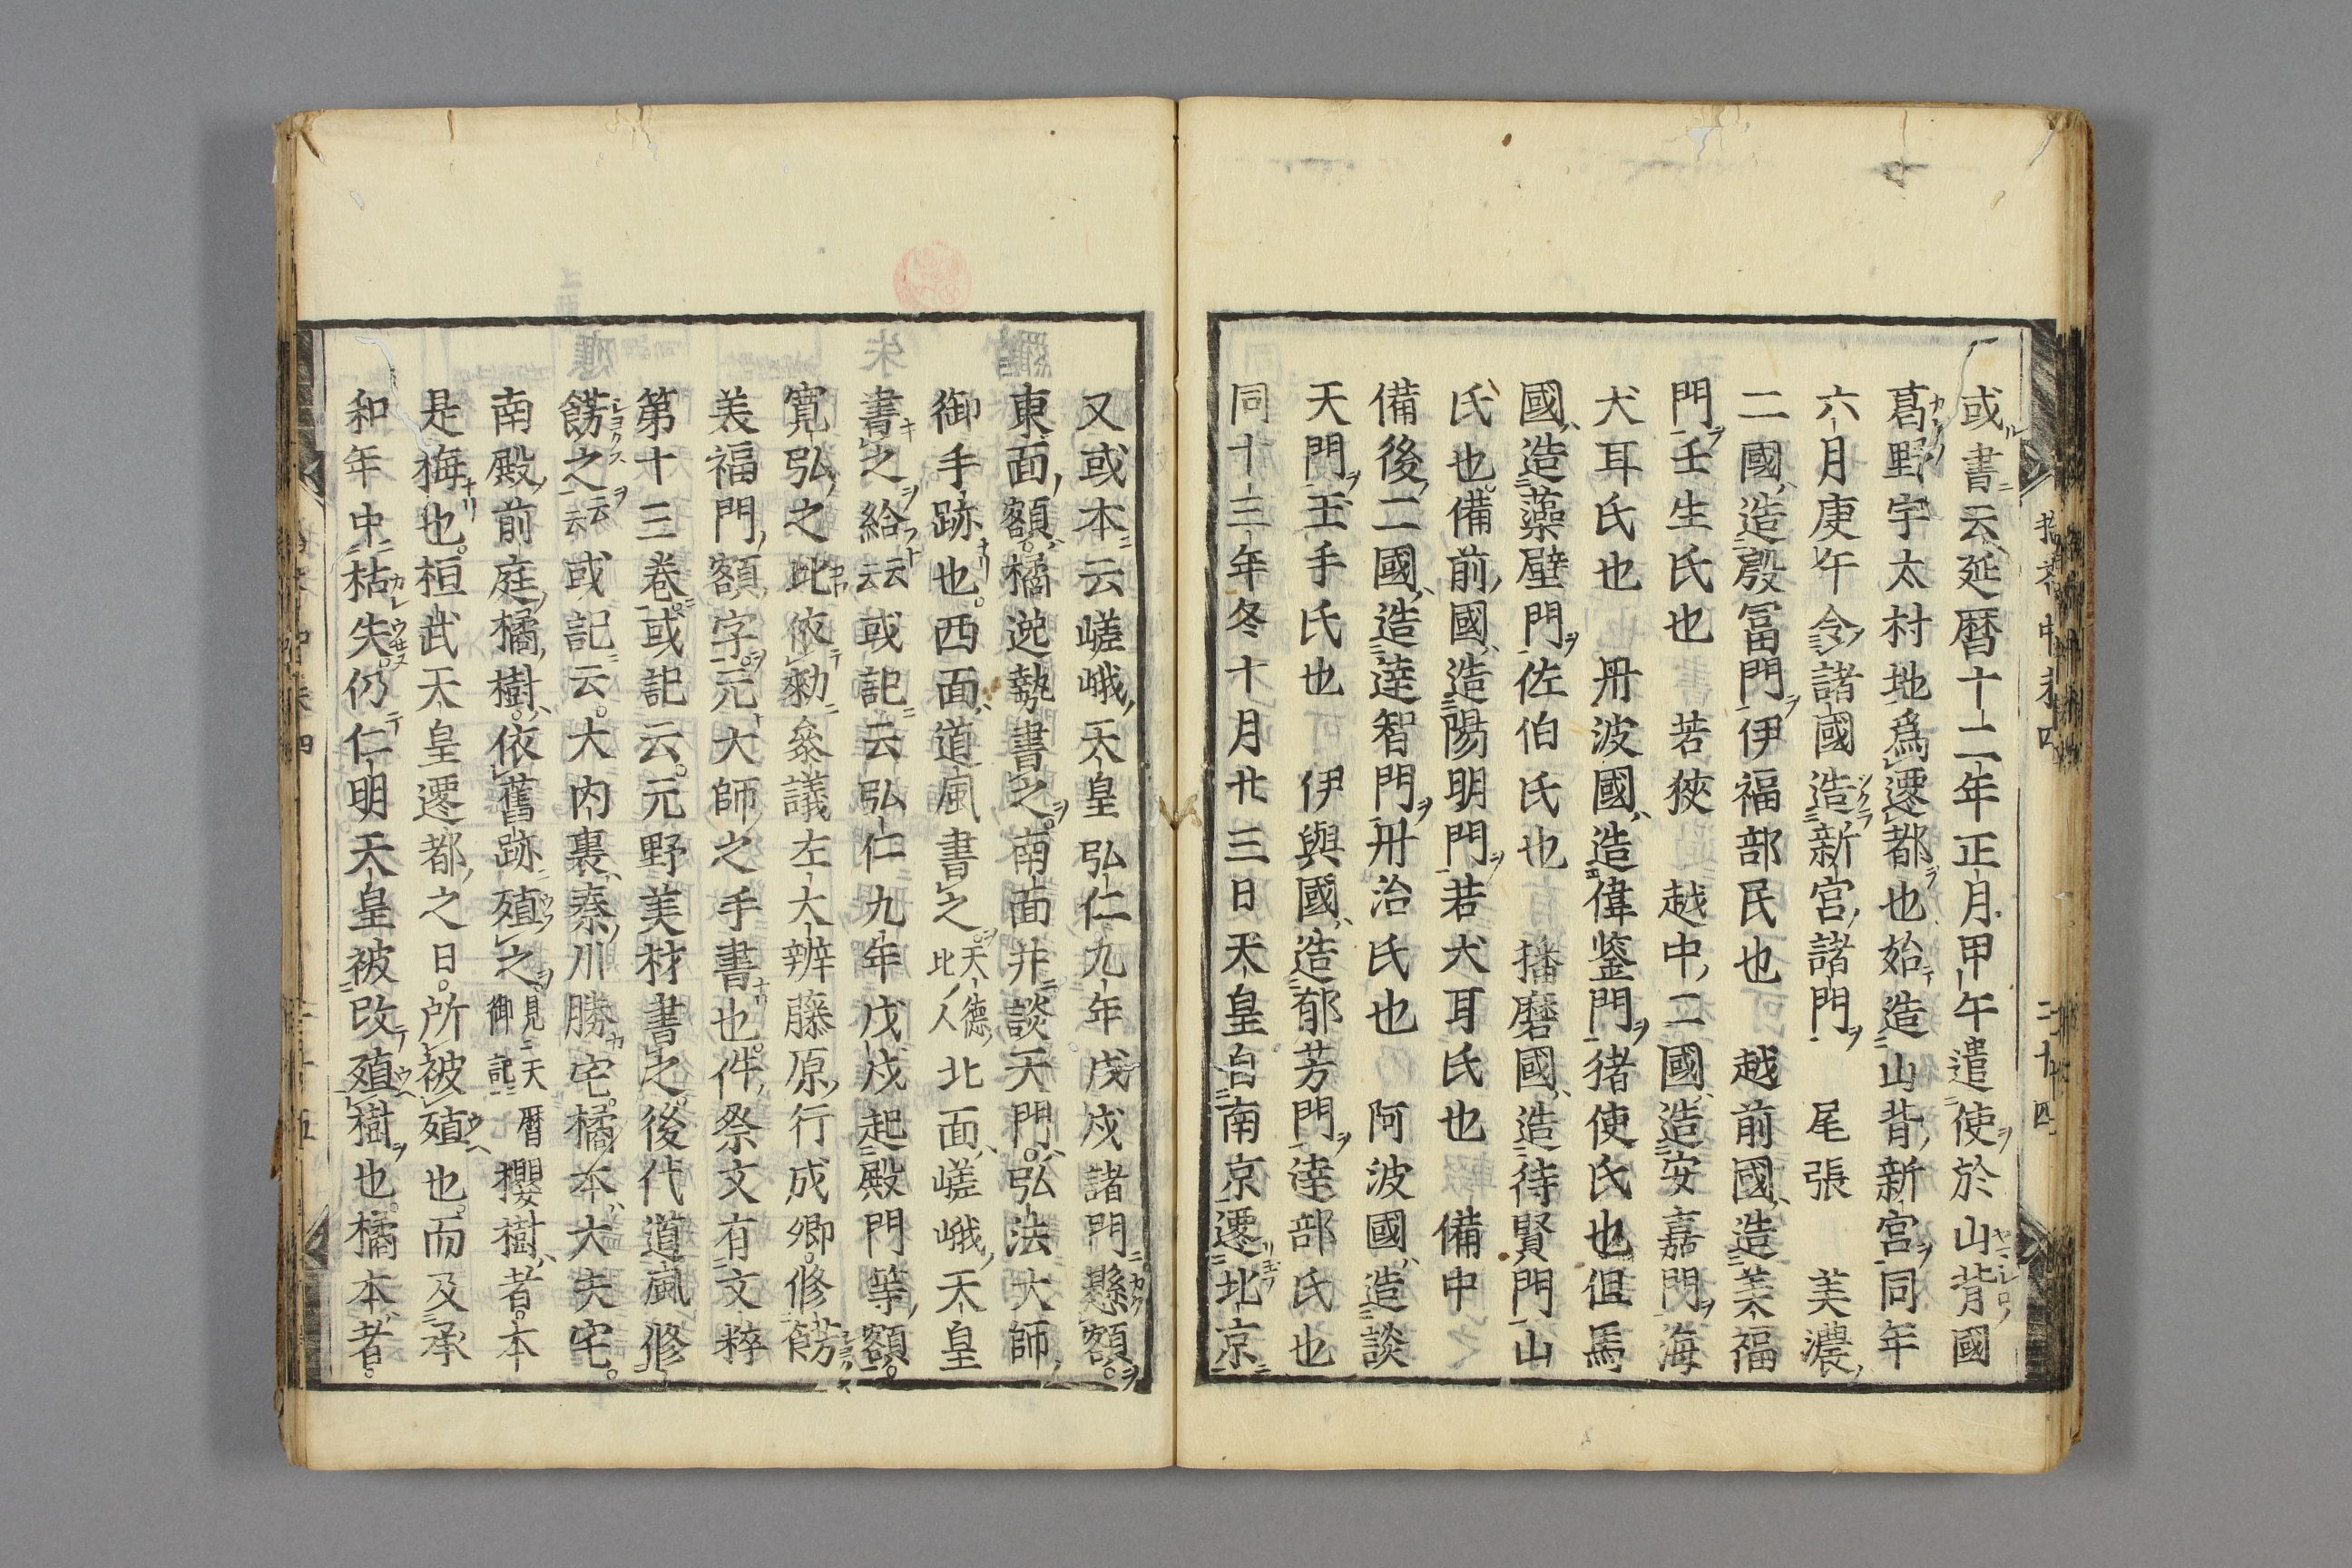 或書云延暦十二年正月甲午遣使於山背國
葛野宇太村地爲遷都也始造山背新宮同年
六月庚午令諸國造新宮諸門尾張美濃
二國造殷冨門伊福部民也越前國造美福
門壬生氏也若狹越中二國造安嘉門海
犬耳氏也丹波國造偉鍳門猪使氏也但馬
國造藻壁門佐伯氏也播磨國造待賢門山
氏也備前國造陽明門若犬耳氏也備中
備後二國造達智門丹治氏也阿波國造談
天門玉手氏也伊與國造郁芳門達部氏也
同十三年冬十月廿三日天皇自南京遷北京
二十四
又或本云嵯峨天皇弘仁九年戊戌諸門懸額
東面額橘逸勢書之南面并談天門弘法大師
御手跡也西面道風書之天德比人北面嵯峨天皇
書之給云云或記云弘仁九年戊戌起殿門等額
寛弘之比依勑叅議左大辨藤原行成卿修餝
美福門額字元大師之手書也件祭文有文粹
第十三卷或記云元野美材書之後代道風修
餝之云云或記云大内裏秦川勝宅橘本大夫宅
南殿前庭橘樹依舊跡殖之見天暦御記櫻樹者本
是梅也桓武天皇遷都之日所被殖也而及承
和年中枯失仍仁明天皇被改殖樹也橘本者